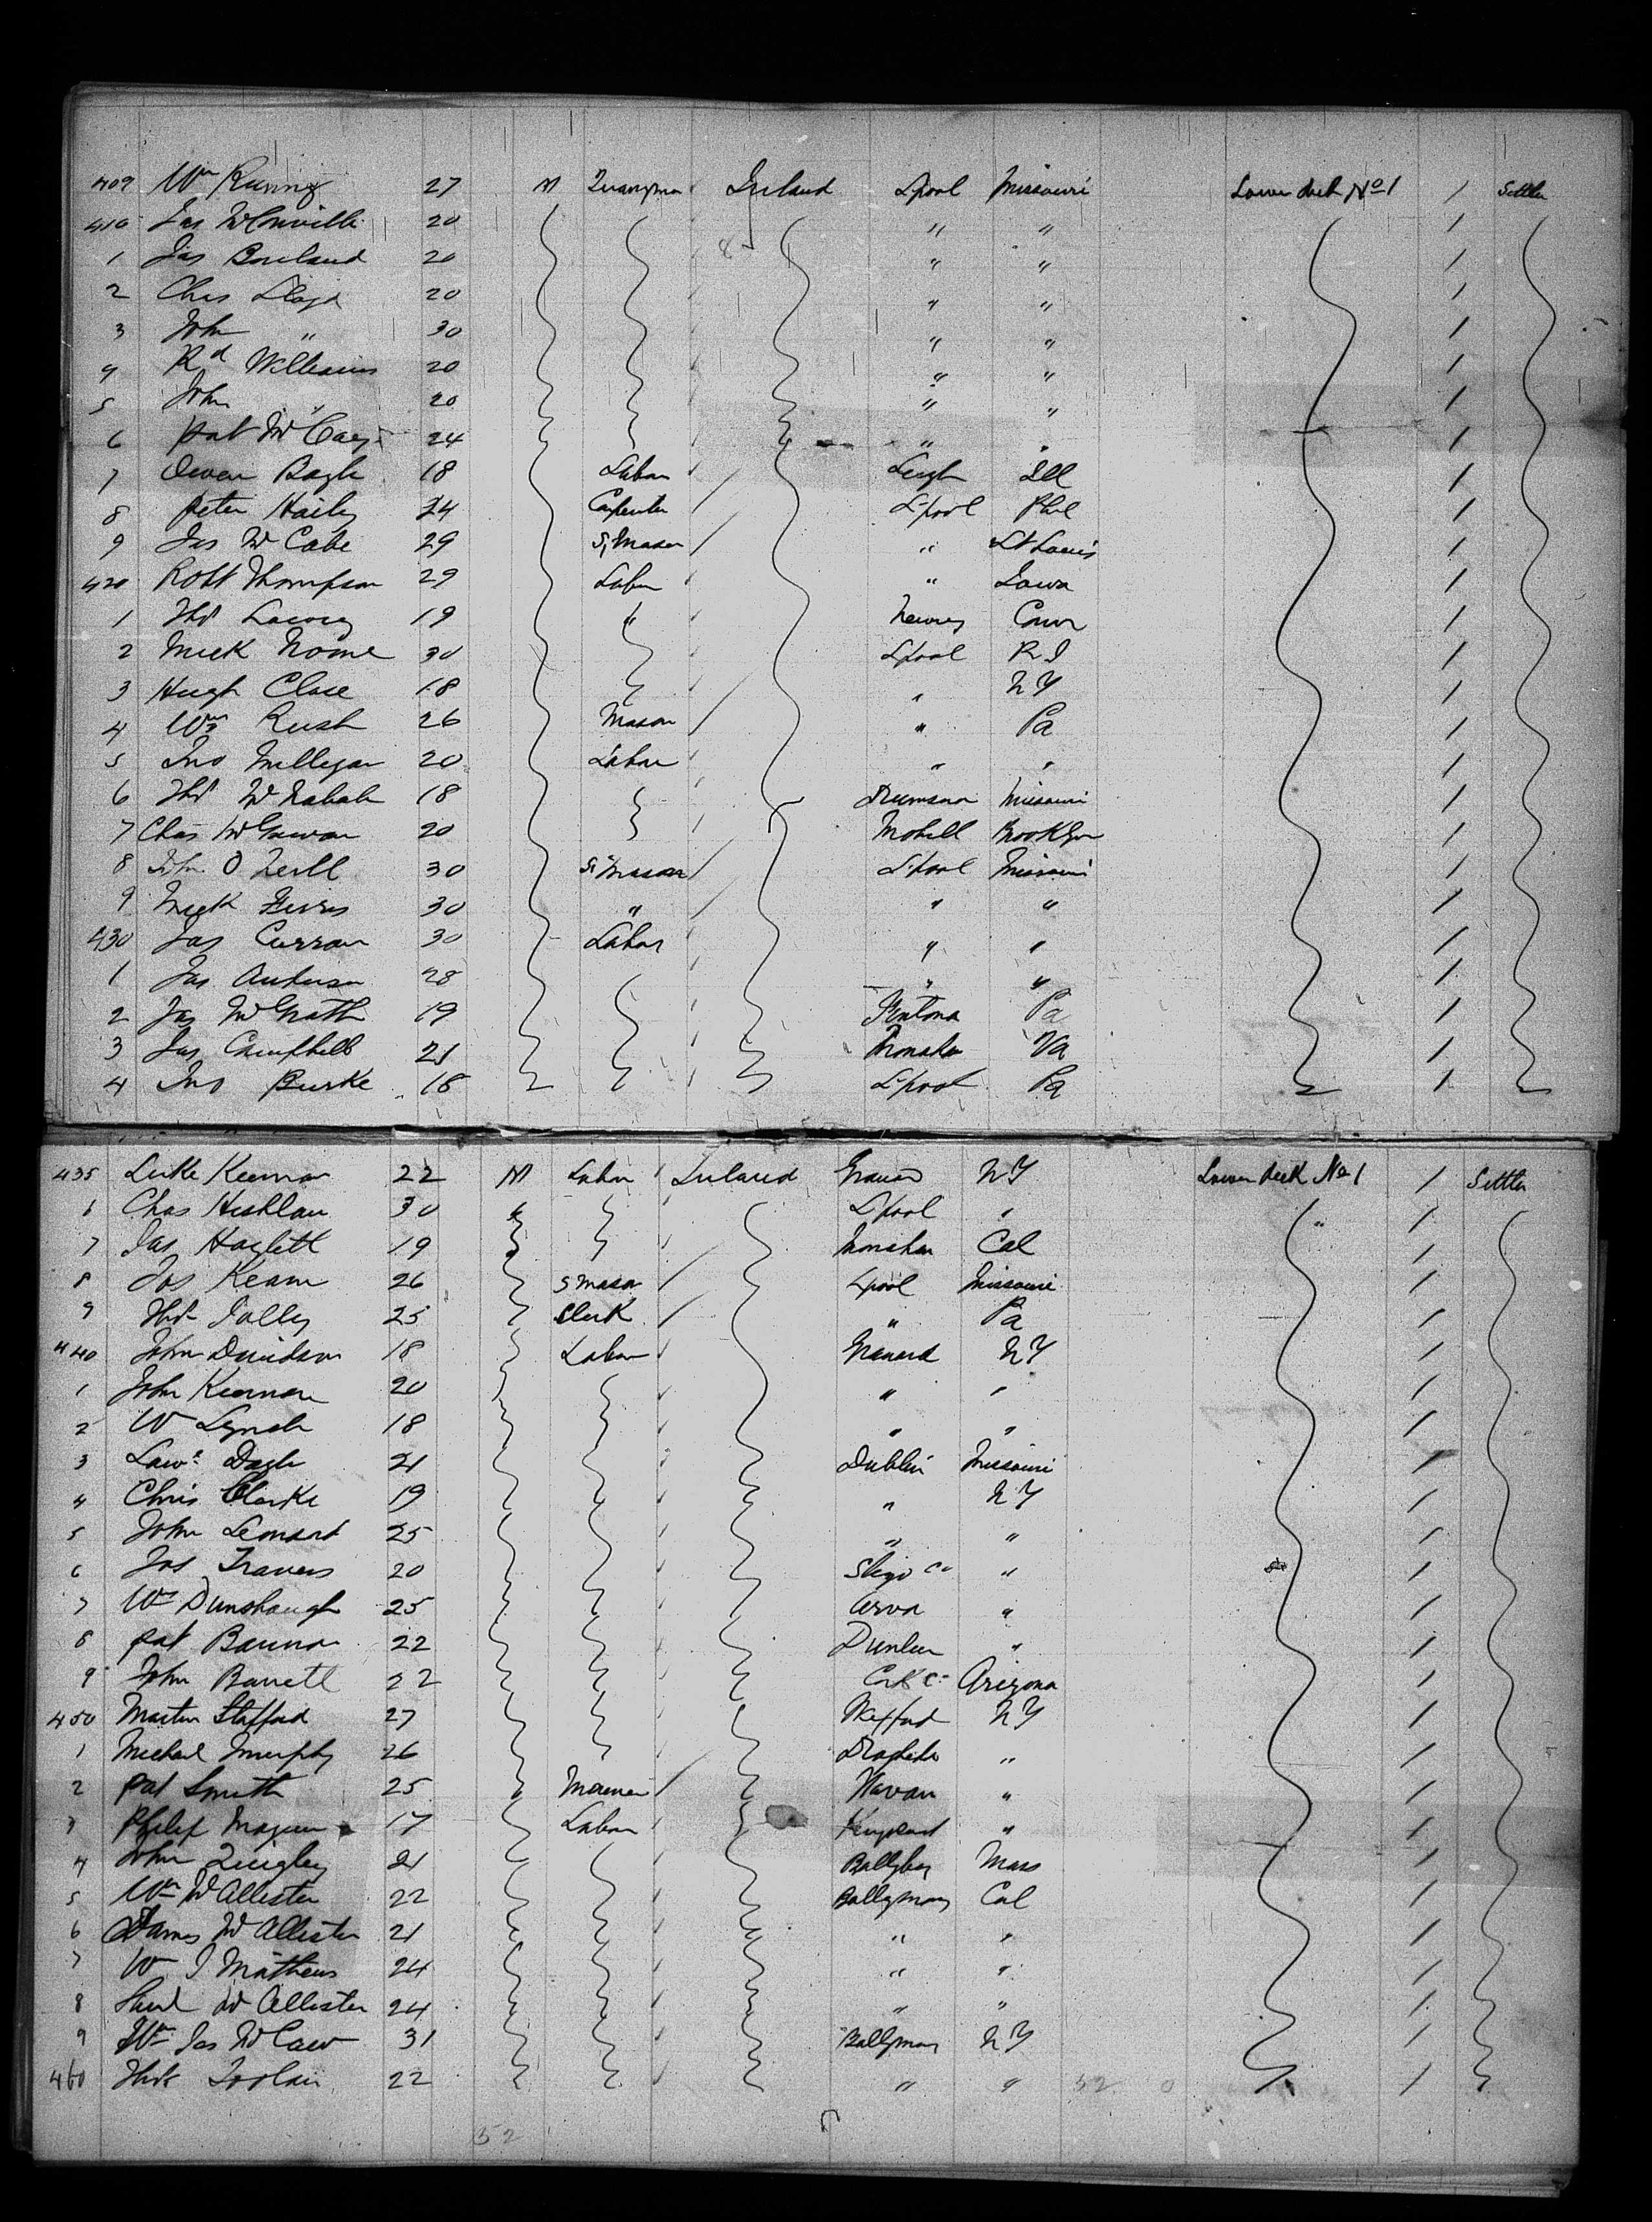 409 Wm 27 M Ireland Lpool Missouri Lower deck No 1 / Settler
410 Jas McConville 20 " " /
1 Jas Boreland 20 " " /
2 Chas Lloyd 20 " " /
3 John " 30 " " /
4 Rd Williams 20 " " /
5 John " 20 " " /
6 Pat 24 " " /
7 Owen Bayle 18 Labor Ill /
8 Peter Haily 24 Carpenter Lpool Phil /
9 Jas McCabe 29 S, Mason " St Louis /
420 Robt Thompson 29 Labor " Iowa /
1 Thos 19 " Newry Conn /
2 Mick 30 Lpool R I /
3 Hugh Close 18 " N Y /
4 Wm Rush 26 Mason " Pa /
5 Jno Milligan 20 Labor " " /
6 Thos 18 Missouri /
7 Chas McGowan 20 Mohill Brooklyn /
8 John O Neill 30 S. Mason Lpool Missouri /
9 Mick 30 " " " /
430 Jas Curran 30 Labor " " /
1 Jas Anderson 28 " " /
2 Jas McGrath 19 Fintona Pa /
3 Jas Campbell 21 Monahan Va /
4 Jno Burke 18 Lpool Pa /
435 Luke Keernan 22 M Labor Ireland Granard N Y Lower deck No 1 / Settler
6 Chas 30 " Lpool " " /
7 Jas Hazlett 19 Monahan Cal /
8 Jos Keam 26 S Mason Lpool Missouri /
9 Thos Jolley 25 Clerk " Pa /
440 John Davidson 18 Labor Granard N Y /
1 John Keernan 20 " " /
2 W Lynch 18 " " /
3 Lawe 21 Dublin Missouri /
4 Chris Clarke 19 " N Y /
5 John Leonard 25 " " /
6 Jos Travers 20 Sligo Co " /
7 Wm Dunshaugh 25 Arva " /
8 Pat Bannon 22 Dunleer " /
9 John Barrett 22 Cork Co Arizona /
450 Martin Stafford 27 Wexford N Y /
1 Michael Murphy 26 Drogheda " /
2 Pat Smith 25 Navan " /
3 Philip 17 Labor Kingscourt " /
4 John Quigley 21 Ballybay Mass /
5 Wm McAllister 22 Ballymony Cal /
6 James McAllister 21 " " /
7 W J Mathews 24 " " /
8 Saml McAllister 24 " " /
9 Wm Jas McCaw 31 Ballymony N Y /
460 Thos Toolan 22 " " 52 0 /
52